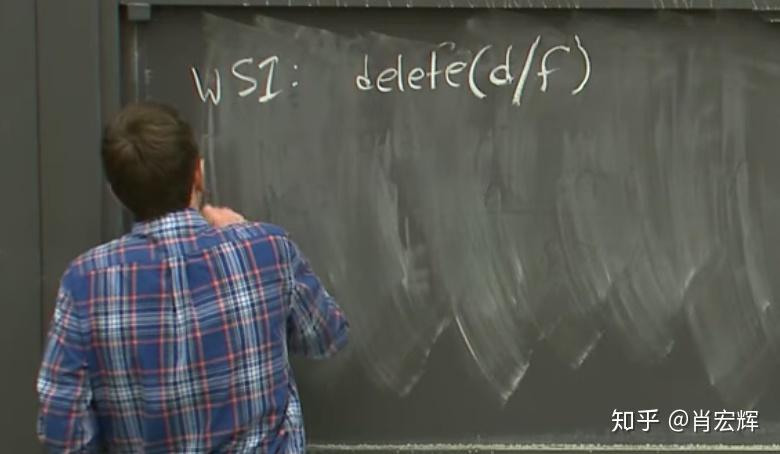 WS1: delete(d/f)
知乎 @肖宏辉